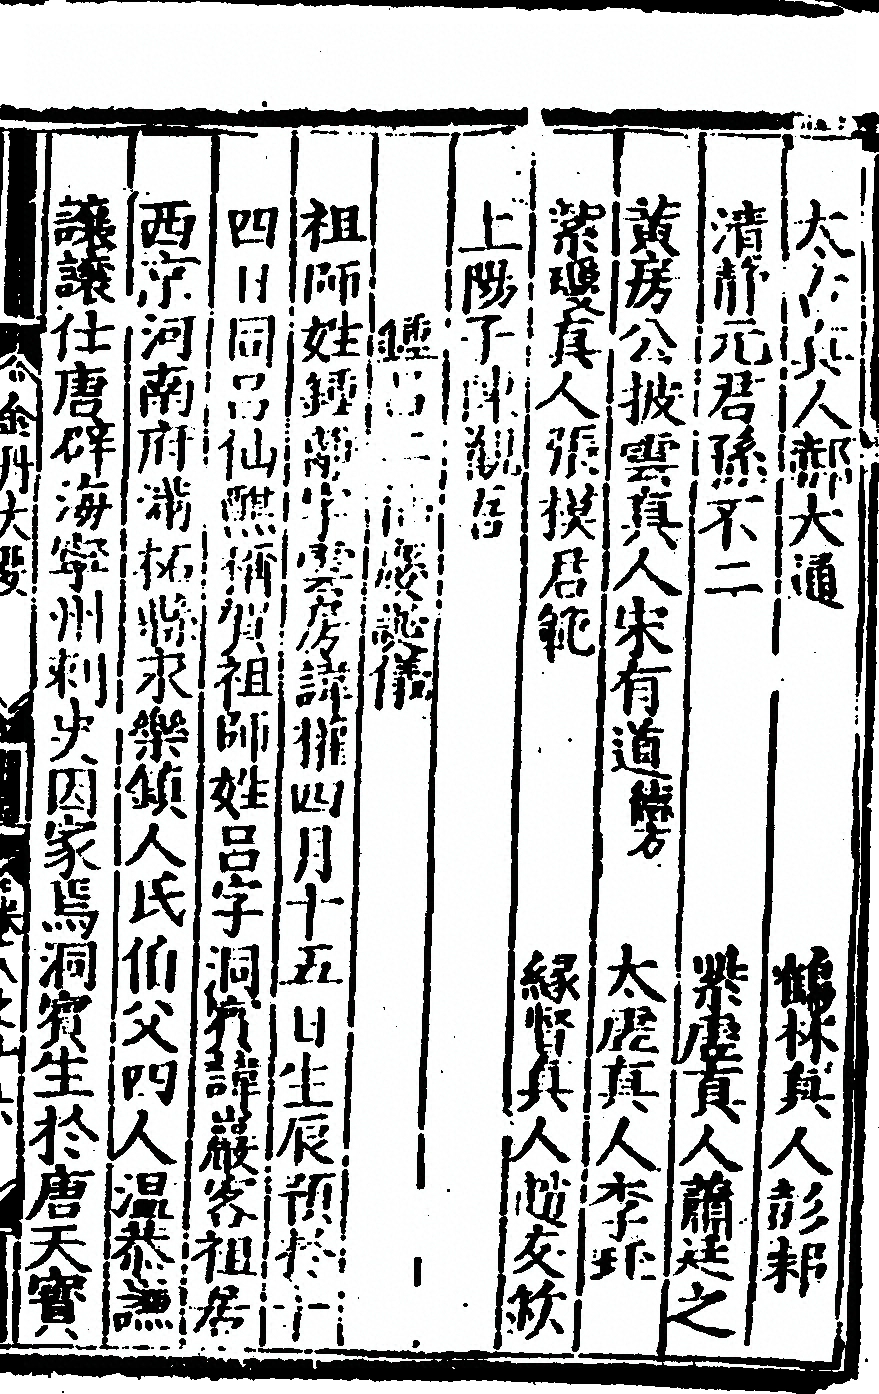 太古真人郝大通　鶴林真人彭耜
清靜元君孫不二　紫虛真人蕭廷之
黃房公披雲真人宋有道德方　太虛真人李珏
紫瓊真人張模君範　緣督真人趙友欽
上陽子陳觀吾
鍾呂二仙慶誕儀
祖師姓鍾離字雲房諱權四月十五日生辰預於十
四日同呂仙醮稱賀祖師姓呂字洞賓諱巖客祖居
西京河南府蒲柘縣永樂鎮人氏伯父四人溫恭謙
讓讓仕唐辟海寧州刺史因家焉洞賓生於唐天寶
金丹大要